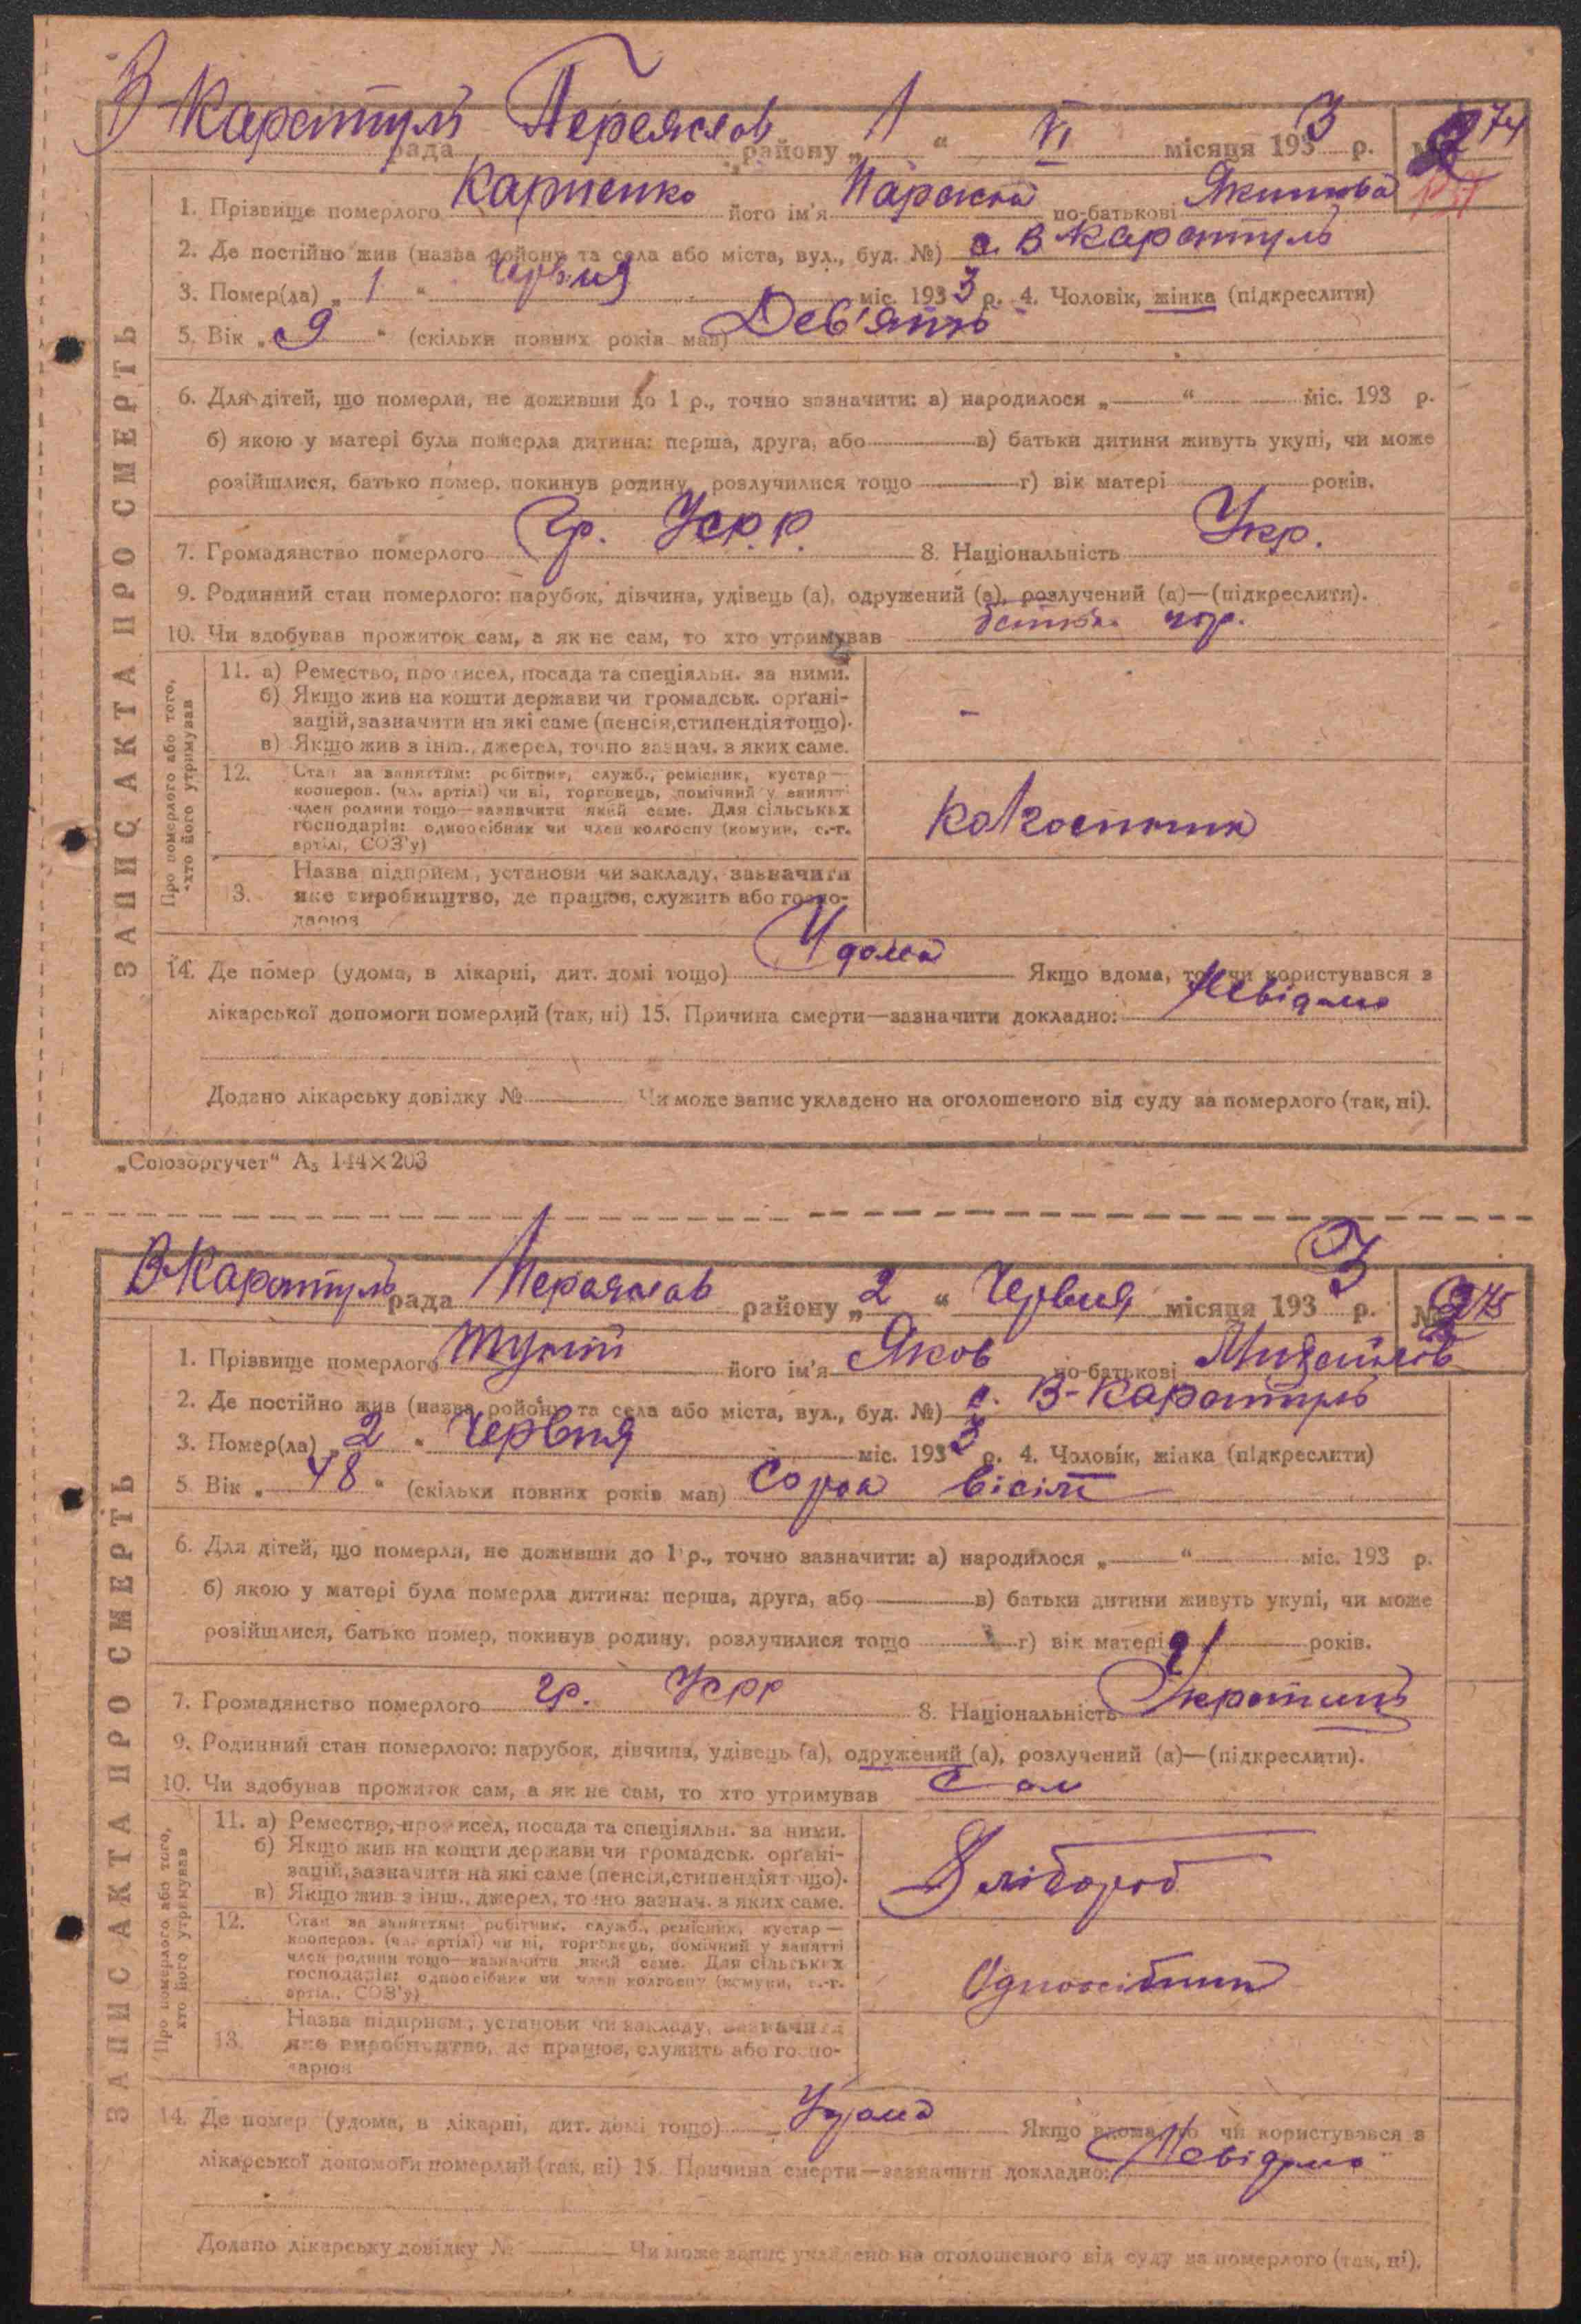 В-Каратуль рада Переяслав району „ 1 “ VI місяця 1933 р. № 274
1. Прізвище померлого Карпенко його ім'я Параска по-батькові Якимова
2. Де постійно жив (назва району та села або міста, вул., буд. №) с. В Каратуль
3. Помер(ла) „ 1 “ Червня міс. 1933 р. 4. Чоловік, жінка (підкреслити)
5. Вік „ 9 “ (скільки повних років мав) Дев'ять
6. Для дітей, що померли, не доживши до 1 р., точно зазначити: а) народилося „ “ міс. 193 р.
б) якою у матері була померла дитина: перша, друга, або в) батьки дитини живуть укупі, чи може
розійшлися, батько помер, покинув родину, розлучилися тощо г) вік матері років.
7. Громадянство померлого Гр. УСРР. 8. Національність Укр.
9. Родинний стан померлого: парубок, дівчина, удівець (а), одружений (а), розлучений (а)—(підкреслити).
10. Чи здобував прожиток сам, а як не сам, то хто утримував
ЗАПИС АКТА ПРО СМЕРТЬ
Про померлого або того,
хто його утримував
11. а) Ремество, промисел, посада та спеціяльн. за ними.
б) Якщо жив на кошти держави чи громадськ. орґані-
зацій, зазначити на які саме (пенсія, стипендія тощо).
в) Якщо жив з інш., джерел, точно зазнач. з яких саме.
-
12. Стан за заняттям: робітник, служб., ремісник, кустар—
кооперов. (чл. артілі) чи ні, торговець, помічний у занятті
член родини тощо—зазначити який саме. Для сільських
господарів: одноосібник чи член колгоспу (комуни, с.-г.
артілі, СОЗ'у)
Колгоспник
3. Назва підприєм., установи чи закладу, зазначити
яке виробництво, де працює, служить або госпо-
дарює
14. Де помер (удома, в лікарні, дит. домі тощо) Удома Якщо вдома, то чи користувався з
лікарської допомоги померлий (так, ні) 15. Причина смерти—зазначити докладно: Невідомо
Додано лікарську довідку № Чи може запис укладено на оголошеного від суду за померлого (так, ні).
„Союзоргучет“ А₅ 144×203
В-Каратуль рада Переяслав району „ 2 “ Червня місяця 1933 р. № 275
1. Прізвище померлого його ім'я Яков по-батькові Михайлів
2. Де постійно жив (назва району та села або міста, вул., буд. №) с. В-Каратуль
3. Помер(ла) „ 2 “ Червня міс. 1933 р. 4. Чоловік, жінка (підкреслити)
5. Вік „ 48 “ (скільки повних років мав) Сорок вісім
6. Для дітей, що померли, не доживши до 1 р., точно зазначити: а) народилося „ “ міс. 193 р.
б) якою у матері була померла дитина: перша, друга, або в) батьки дитини живуть укупі, чи може
розійшлися, батько помер, покинув родину, розлучилися тощо г) вік матері років.
7. Громадянство померлого гр. УСРР 8. Національність
9. Родинний стан померлого: парубок, дівчина, удівець (а), одружений (а), розлучений (а)—(підкреслити).
10. Чи здобував прожиток сам, а як не сам, то хто утримував Сам
ЗАПИС АКТА ПРО СМЕРТЬ
Про померлого або того,
хто його утримував
11. а) Ремество, промисел, посада та спеціяльн. за ними.
б) Якщо жив на кошти держави чи громадськ. орґані-
зацій, зазначити на які саме (пенсія, стипендія тощо).
в) Якщо жив з інш., джерел, точно зазнач. з яких саме.
Хлібороб
12. Стан за заняттям: робітник, служб., ремісник, кустар—
кооперов. (чл. артілі) чи ні, торговець, помічний у занятті
член родини тощо—зазначити який саме. Для сільських
господарів: одноосібник чи член колгоспу (комуни, с.-г.
артілі, СОЗ'у)
Одноосібник
13. Назва підприєм., установи чи закладу, зазначити
яке виробництво, де працює, служить або госпо-
дарює
14. Де помер (удома, в лікарні, дит. домі тощо) Удома Якщо вдома, то чи користувався з
лікарської допомоги померлий (так, ні) 15. Причина смерти—зазначити докладно: Невідомо
Додано лікарську довідку № Чи може запис укладено на оголошеного від суду за померлого (так, ні).